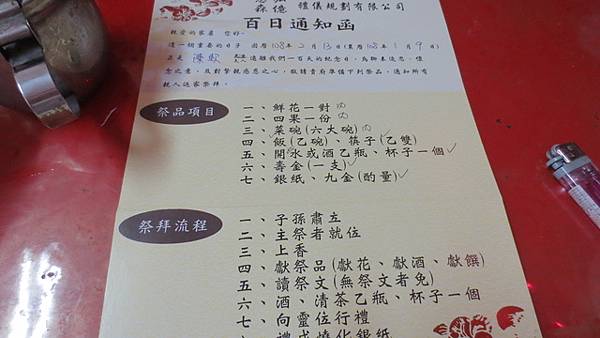 森億 禮儀規劃有限公司
百日通知函
親愛的家屬 您好:
這一個重要的日子 國曆108年2月13日(農曆108年1月9日)
正是 遠離我們一百天的紀念日，為聊表追思、懷
念之意，及對摯親感恩之心，敬請貴府準備下列祭品，通知所有
親人返家祭拜。
祭品項目
一、鮮花一對
二、四果一份
三、菜碗(六大碗)
四、飯(乙碗)、筷子(乙雙)
五、開水或酒乙瓶、杯子一個
六、壽金(一支)
七、銀紙、九金(酌量)
祭拜流程
一、子孫肅立
二、主祭者就位
三、上香
四、獻祭品(獻花、獻酒、獻饌)
五、讀祭文(無祭文者免)
六、酒、清茶乙瓶、杯子一個
七、向靈位行禮
禮成燒化銀紙